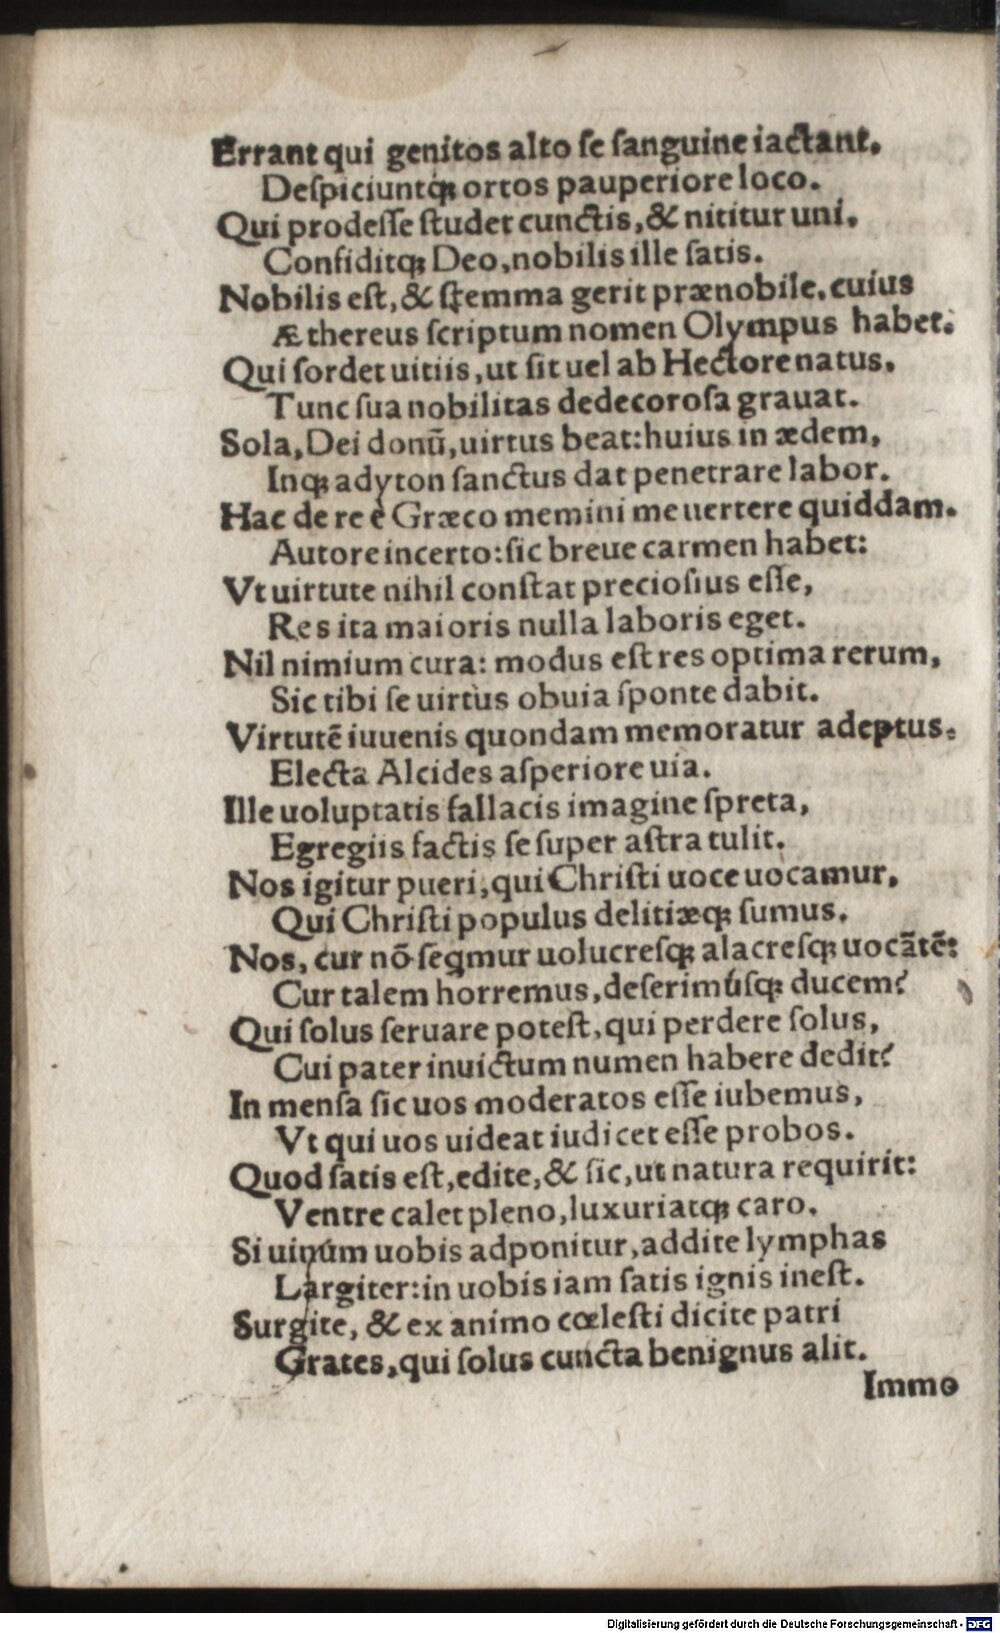 Errant qui genitos alto se sanguine iactant.
Despiciuntq́ꝫ ortos pauperiore loco.
Qui prodesse studet cunctis, & nititur uni.
Confiditqꝫ Deo, nobilis ille satis.
Nobilis est, & stemma gerit prænobile, cuius
Æthereus scriptum nomen Olympus habet.
Qui sordet uitiis, ut sit uel ab Hectore natus.
Tunc sua nobilitas dedecorosa grauat.
Sola, Dei donū, uirtus beat: huius in ædem,
Inqꝫ adyton sanctus dat penetrare labor.
Hac de re è Græco memini me uertere quiddam.
Autore incerto: sic breue carmen habet:
Vt uirtute nihil constat preciosius esse,
Res ita maioris nulla laboris eget.
Nil nimium cura: modus est res optima rerum,
Sic tibi se uirtus obuia sponte dabit.
Virtutē iuuenis quondam memoratur adeptus.
Electa Alcides asperiore uia.
Ille uoluptatis fallacis imagine spreta,
Egregiis factis se super astra tulit.
Nos igitur pueri, qui Christi uoce uocamur,
Qui Christi populus delitiæqꝫ sumus.
Nos, cur nō seqmur uolucresqꝫ alacresqꝫ uocātē:
Cur talem horremus, deserimúsqꝫ ducem?
Qui solus seruare potest, qui perdere solus,
Cui pater inuictum numen habere dedit?
In mensa sic uos moderatos esse iubemus,
Vt qui uos uideat iudicet esse probos.
Quod satis est, edite, & sic, ut natura requirit:
Ventre calet pleno, luxuriatqꝫ caro.
Si uinum uobis adponitur, addite lymphas
Largiter: in uobis iam satis ignis inest.
Surgite, & ex animo cœlesti dicite patri
Grates, qui solus cuncta benignus alit.
Immo
Digitalisierung gefördert durch die Deutsche Forschungsgemeinschaft - DFG